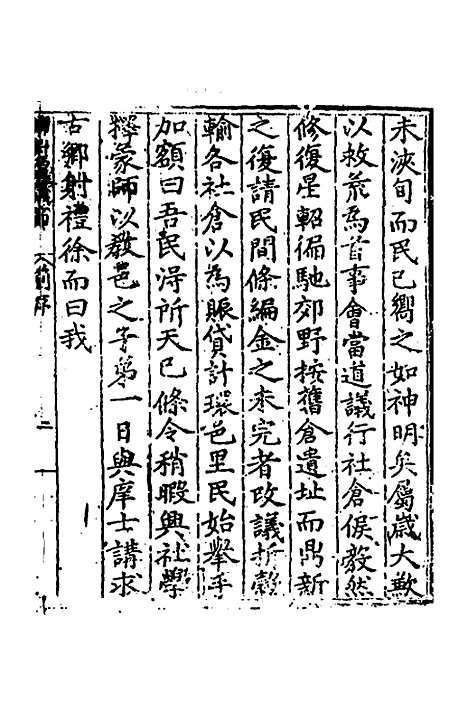 未浹旬而民已嚮之如神明矣屬歲大歉
以救荒為首事會當道議行社倉侯毅然
修復星軺徧馳郊野按舊倉遺址而鼎新
之復請民間條編金之未完者改議折穀
輸各社倉以為賑貸計環邑里民始舉手
加額曰吾民淂所天已條令稍暇興社學
擇蒙師以教邑之子弟一日與庠士講求
古鄉射禮徐而曰我